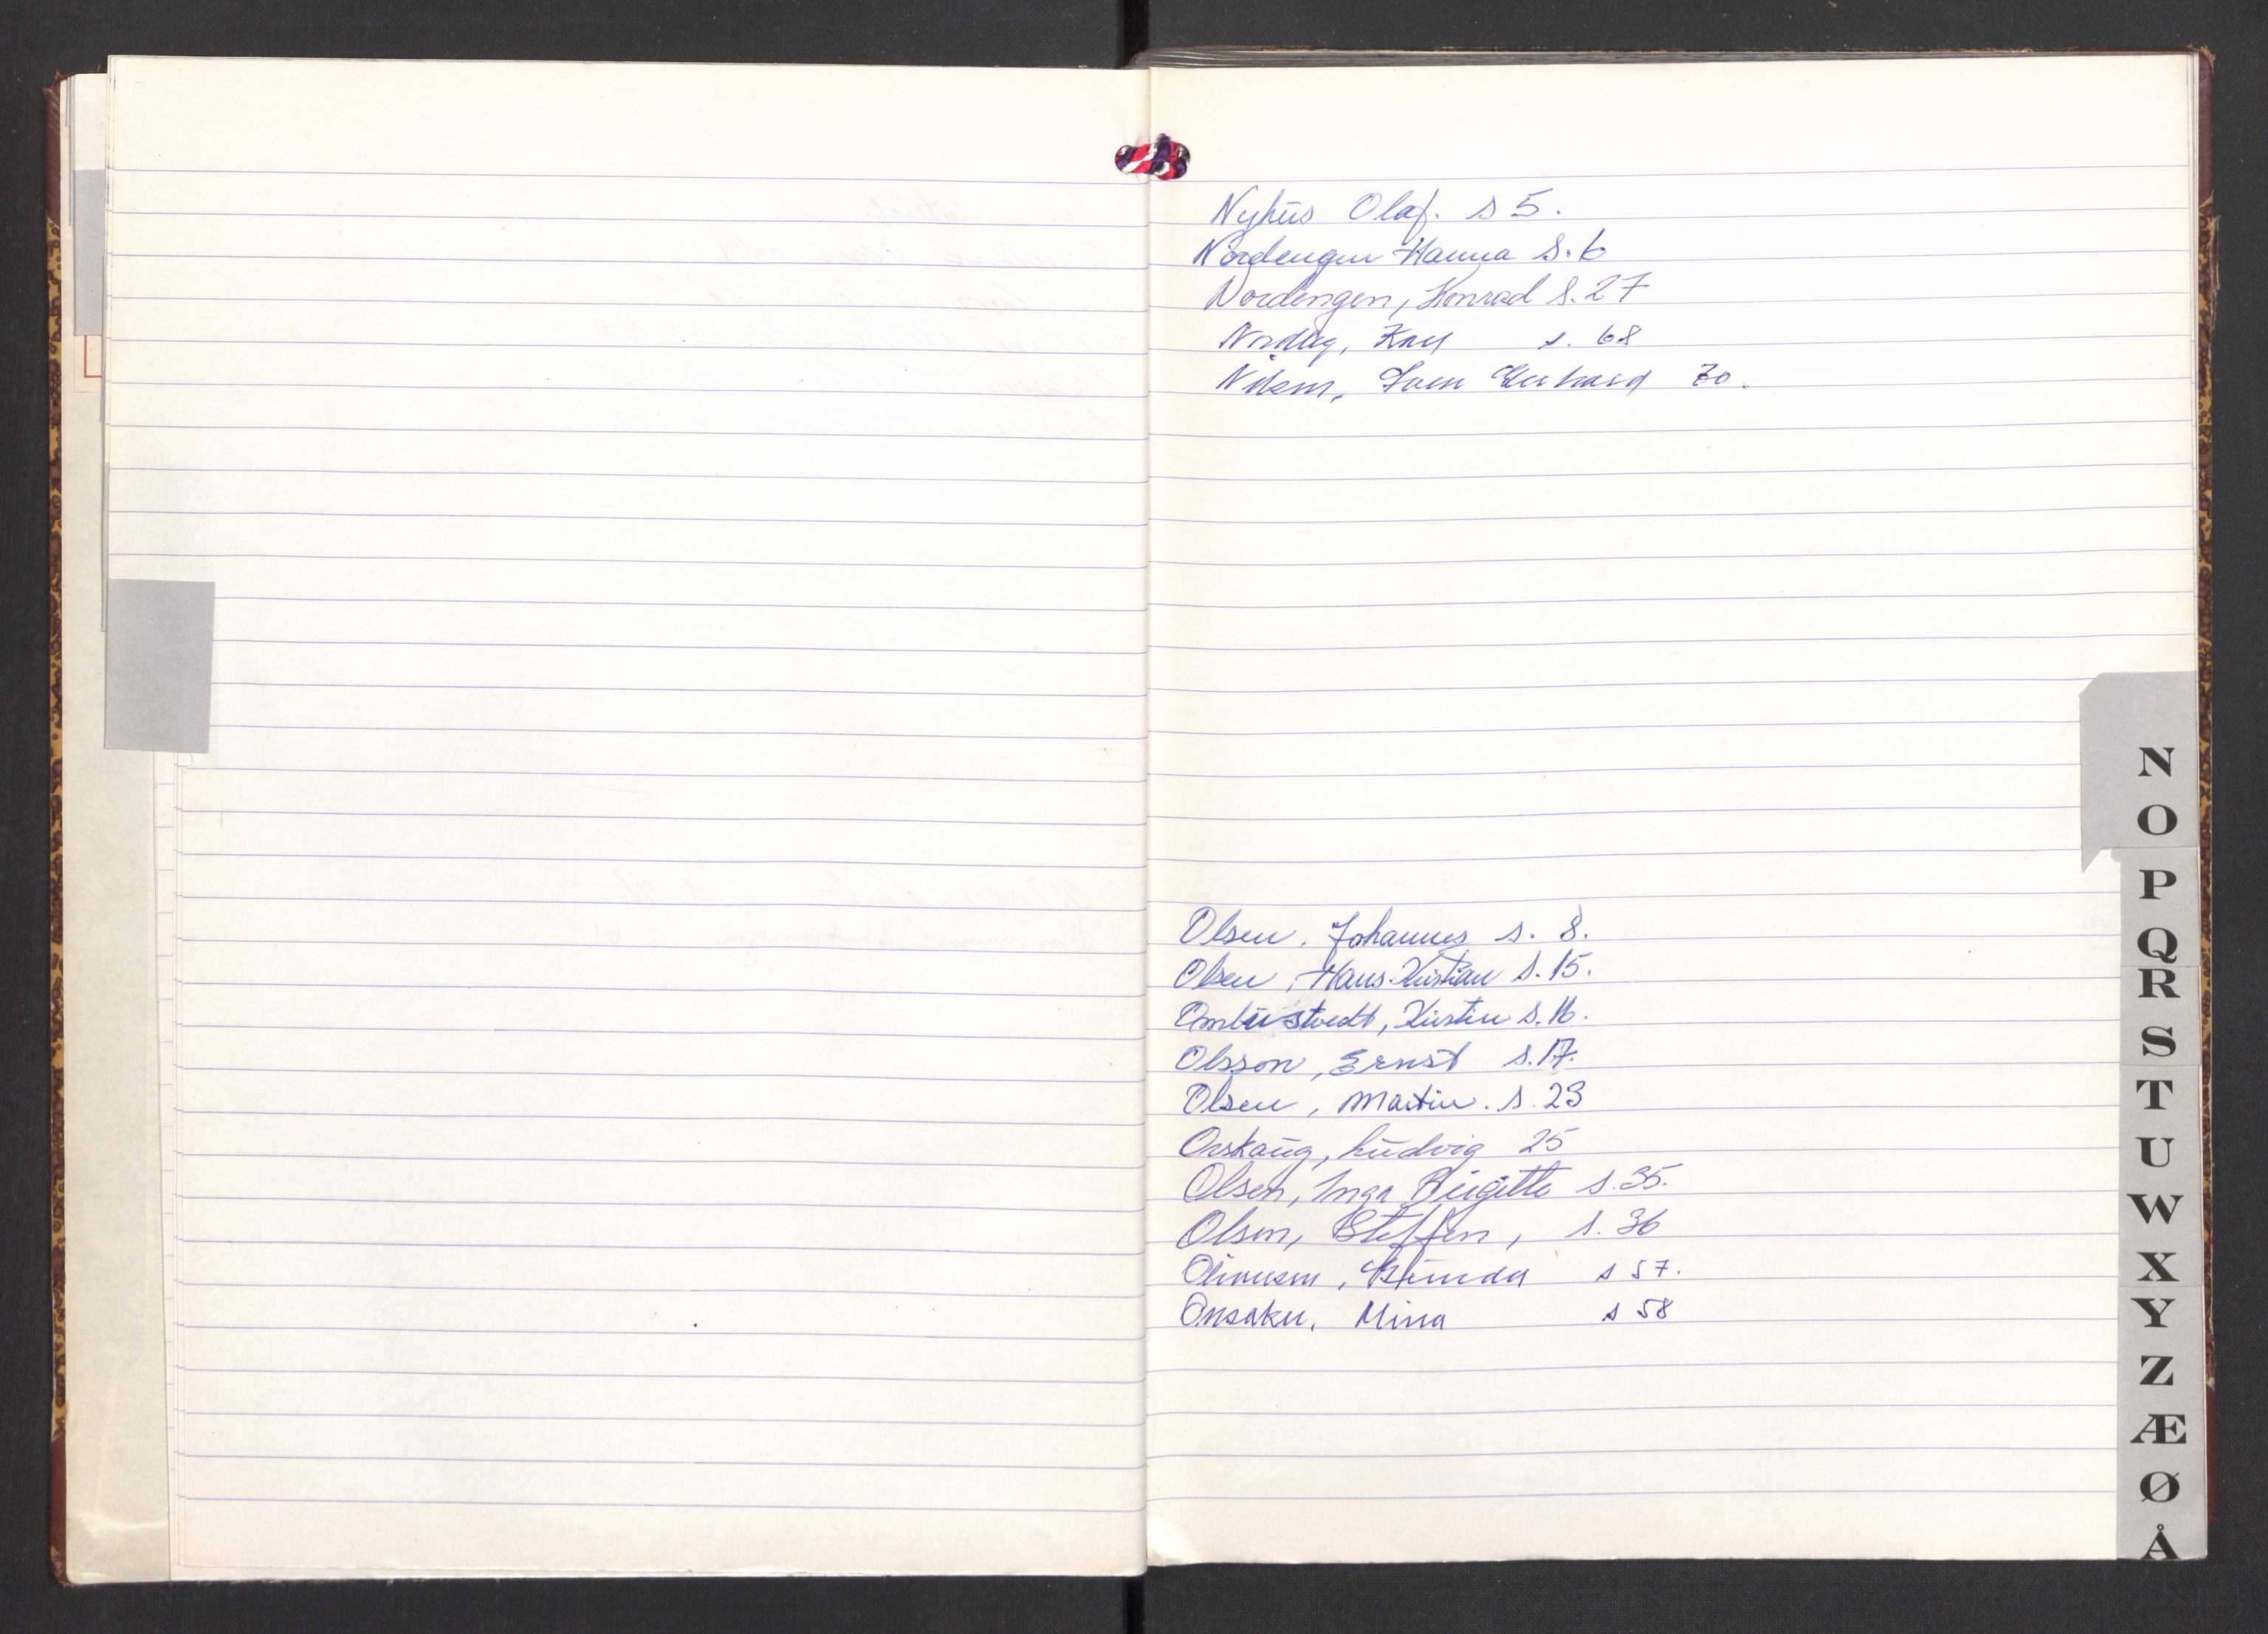 Nyhus Olaf. s 5.
Nordengen Hanna s. 6
Nordengen, Konrad s. 27
Nordlig, Karl s. 68
Nilsen, Sven Gerhard 70.
Olsen, Johannes s. 8.
Olsen, Hans-Kristian s. 15.
Ombustvedt, Kirstin s. 16.
Olsson, Ernst s. 17.
Olsen, Martin. s. 23
Onskaug, Ludvig 25
Olsen, Inga Birgitte s. 35.
Olsen, Steffen, s. 36
s 57.
Onsaker, Mina s 58
N
O
P
Q
R
S
T
U
W
X
Y
Z
Æ
Ø
Å